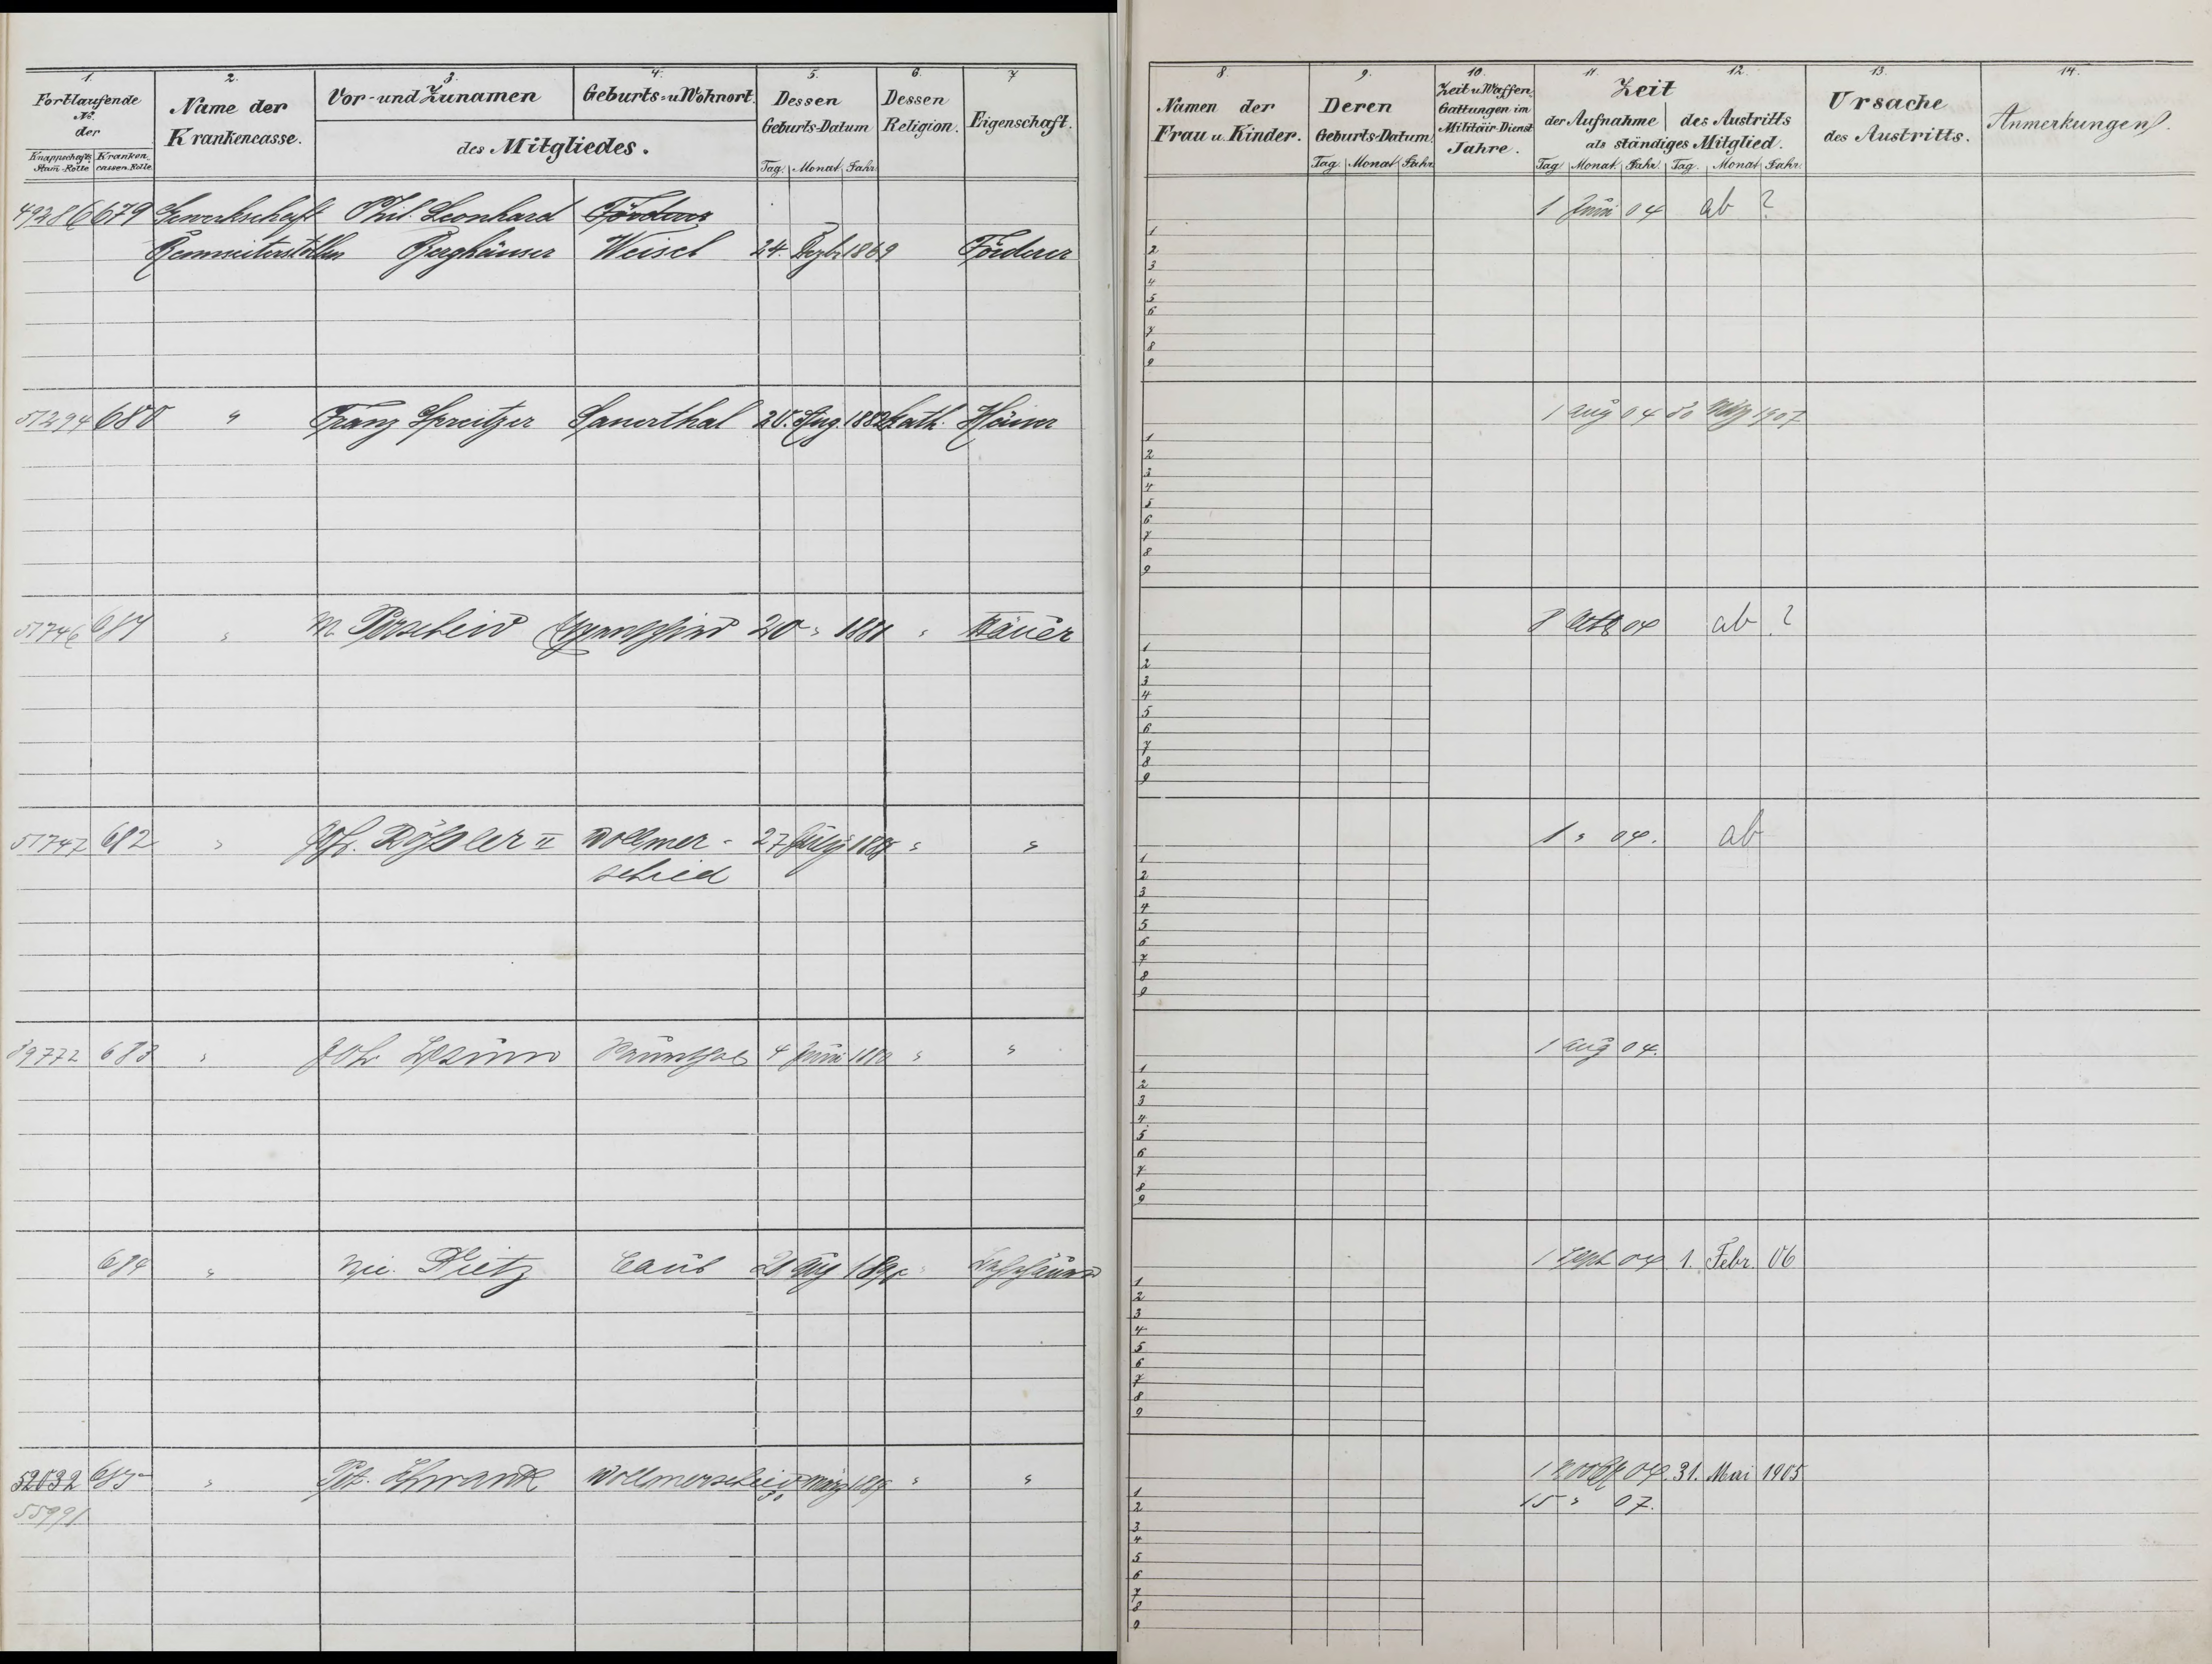 1. 2. 3. 4. 5. 6. 7
Fortlaufende No. der
Knappschafts Stam̄-Rolle Kranken cassen-Rolle
Name der Krankencasse.
Vor- und Zunamen
Geburts- u Wohnort
des Mitgliedes.
Dessen Geburts-Datum
Tag. Monat Jahr.
Dessen Religion.
Eigenschaft.
8. 9. 10. 11. 12. 13. 14.
Namen der Frau u. Kinder.
Deren Geburts-Datum.
Tag. Monat Jahr
Zeit u Waffen-Gattungen im Militäir-Dienst Jahre.
Zeit
der Aufnahme des Austritts
als ständiges Mitglied.
Tag Monat Jahr. Tag. Monat Jahr.
Ursache des Austritts.
Anmerkungen
49286 679 Gewerkschaft Phil. Leonhard 1 Juni 04 ab ?
Berghäuser Weisel 24. Dezbr 1869 Förderer
51294 680 " Franz Spreitzer Sauerthal 20. Aug. 1882 kath. Häuer 1 Aug 04 30 1907
51746 681 " M. Porscheid 20 " 1881 " Häuer 04 ab ?
51747 682 " Joh. II Wollmer-
schied 27 " " 1 " 04. ab
39772 683 " Joh 4 Juni 1880 " " 1 Aug 04.
684 " Nic. Pietz Caub Aug " 1 Sept 04 1. Febr. 06
52032 685 " Pet. Schwank Wollmerschied März " " 1 04. 31. Mai 1905
55991 15 " 07.
1
2
3
4
5
6
7
8
9
1
2
3
4
5
6
7
8
9
1
2
3
4
5
6
7
8
9
1
2
3
4
5
6
7
8
9
1
2
3
4
5
6
7
8
9
1
2
3
4
5
6
7
8
9
1
2
3
4
5
6
7
8
9